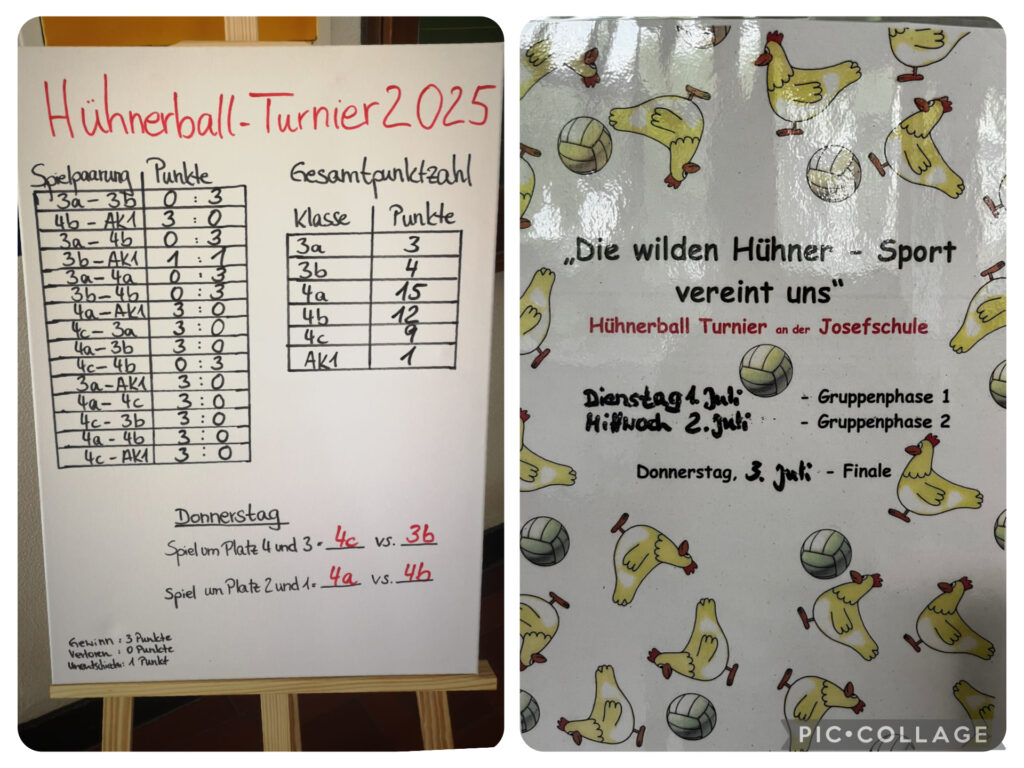 Hühnerball-Turnier 2025
Spielpaarung Punkte
3a-3b 0 : 3
4b-AK1 3 : 0
3a-4b 0 : 3
3b-AK1 1 : 1
3a-4a 0 : 3
3b-4b 0 : 3
4a-AK1 3 : 0
4c-3a 3 : 0
4a-3b 3 : 0
4c-4b 0 : 3
3a-AK1 3 : 0
4a-4c 3 : 0
4c-3b 3 : 0
4a-4b 3 : 0
4c-AK1 3 : 0
Gesamtpunktzahl
Klasse Punkte
3a 3
3b 4
4a 15
4b 12
4c 9
AK1 1
Donnerstag
Spiel um Platz 4 und 3 = 4c vs. 3b
Spiel um Platz 2 und 1 = 4a vs. 4b
Gewinn : 3 Punkte
Verloren : 0 Punkte
Unentschieden : 1 Punkt
„Die wilden Hühner - Sport
vereint uns“
Hühnerball Turnier an der Josefschule
Dienstag 1. Juli - Gruppenphase 1
Mittwoch 2. Juli - Gruppenphase 2
Donnerstag, 3. Juli - Finale
PIC•COLLAGE